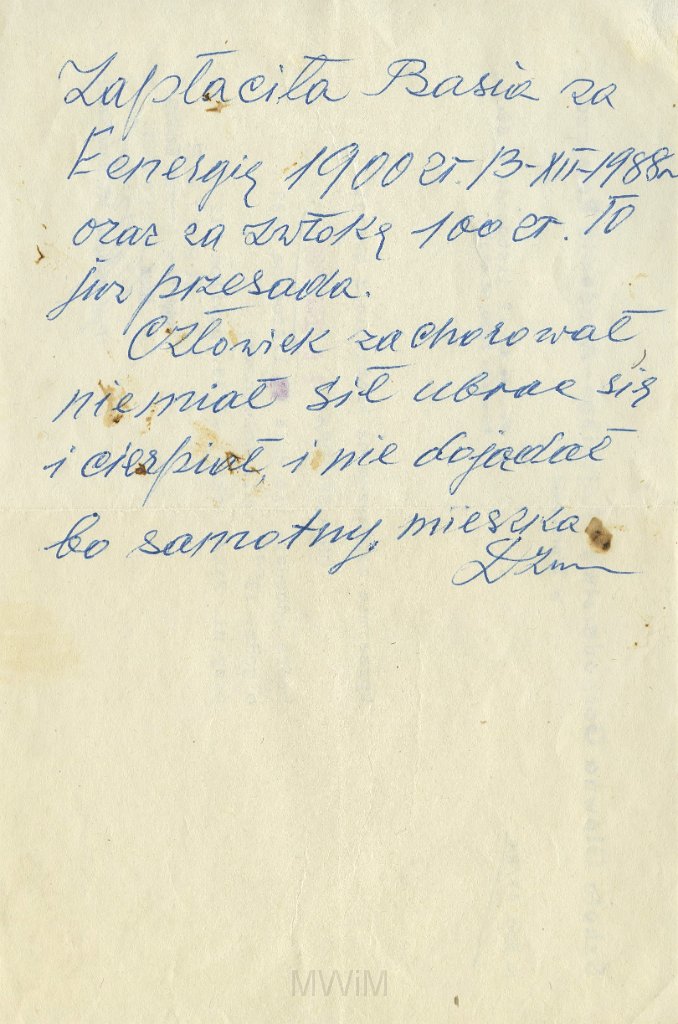 Zapłaciła Basia za
Eenergię 1900 zł. 13-XII-1988r
oraz za zwłokę 100 zł. To
już przesada.
Człowiek zachorował,
niemiał sił ubrac się
i cierpiał, i nie dojadał
bo samotny, mieszka
MWiM